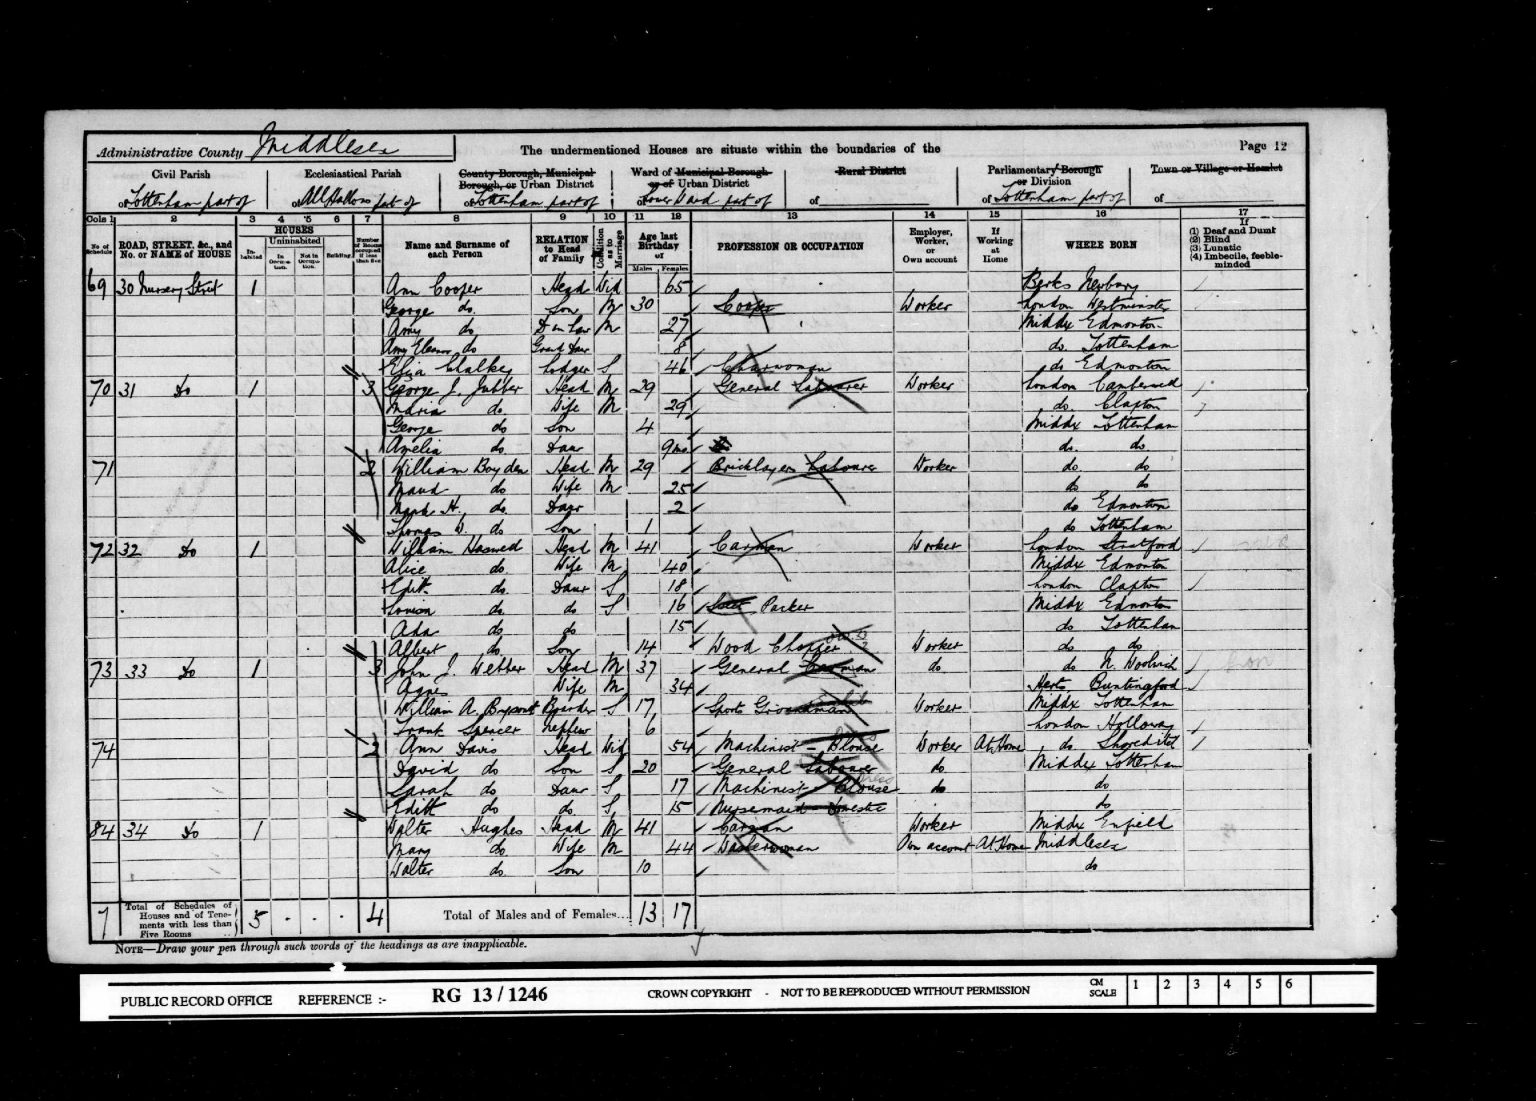 Administrative County Middlesex
The undermentioned Houses are situate within the boundaries of the
Page 12
Civil Parish
of Tottenham part of
Ecclesiastical Parish
of All Hallows part of
County Borough, Municipal Borough, or Urban District
of Tottenham part of
Ward of Municipal Borough or of Urban District
of Lower Ward part of
Rural District
of
Parliamentary Borough or Division
of Tottenham part of
Town or Village or Hamlet
of
Cols 1 2 3 4 5 6 7 8 9 10 11 12 13 14 15 16 17
No of Schedule
ROAD, STREET, &c., and No. or NAME of HOUSE
HOUSES
Inhabited
Uninhabited
In Occupation.
Not in Occupation.
Building.
Number of Rooms occupied if less than five
Name and Surname of each Person
RELATION to Head of Family
Condition as to Marriage
Age last Birthday of
Males Females
PROFESSION OR OCCUPATION
Employer, Worker, or Own account
If Working at Home
WHERE BORN
If
(1) Deaf and Dumb
(2) Blind
(3) Lunatic
(4) Imbecile, feeble-minded
69 30 Nursery Street 1 Ann Cooper Head Wid 65 Berks Newbury
George do. Son M 30 Worker London Westminster
Amy do D in Law M 27 Middx Edmonton
Amy Eleanor do Grand Daur 8 do. Tottenham
Eliza Chalkey Lodger S 46 Charwoman do Edmonton
70 31 Do 1 3 George J. Jubber Head M 29 General Labourer Worker London Camberwell
Maria do. Wife M 29 do. Clapton
George do Son 4 Middx Tottenham
Amelia do Daur 9mo do. do.
71 2 William Boyden Head M 29 Bricklayers Labourer Worker do. do
Maud do Wife M 25 do do
H. do. Daur 2 do Edmonton
Thomas W. do Son 1 do Tottenham
72 32 Do 1 William Head M 41 Carman Worker London Stratford
Alice do. Wife M 40 Middx Edmonton
Edith do. Daur S 18 London Clapton
do. do S 16 Packer Middx Edmonton
Ada do do 15 do Tottenham
Albert do. Son 14 Wood Chopper Worker do do
73 33 Do 1 3 John J. Webber Head M 37 General Carman do do N. Woolwich
Agnes Wife M 34 Herts Buntingford
William A. Boarder S 17 Sports Groundsman Worker Middx Tottenham
Frank Spencer Nephew 6 London Holloway
74 2 Ann Davis Head Wid 54 Machinist - Blouse Worker At Home do. Shoreditch
David do Son S 20 General Labourer do. Middx Tottenham
Sarah do Daur S 17 Machinist Blouse do do
Edith do do S 15 Nursemaid - Domestic do
84 34 Do 1 Walter Hughes Head M 41 Carman Worker Middx Enfield
Mary do. Wife M 44 Washerwoman Own account At Home Middlesex
Walter do. Son 10 do
7 Total of Schedules of Houses and of Tenements with less than Five Rooms 5 - - - 4 Total of Males and of Females... 13 17
NOTE—Draw your pen through such words of the headings as are inapplicable.
PUBLIC RECORD OFFICE REFERENCE :- RG 13 / 1246 CROWN COPYRIGHT - NOT TO BE REPRODUCED WITHOUT PERMISSION CM SCALE 1 2 3 4 5 6